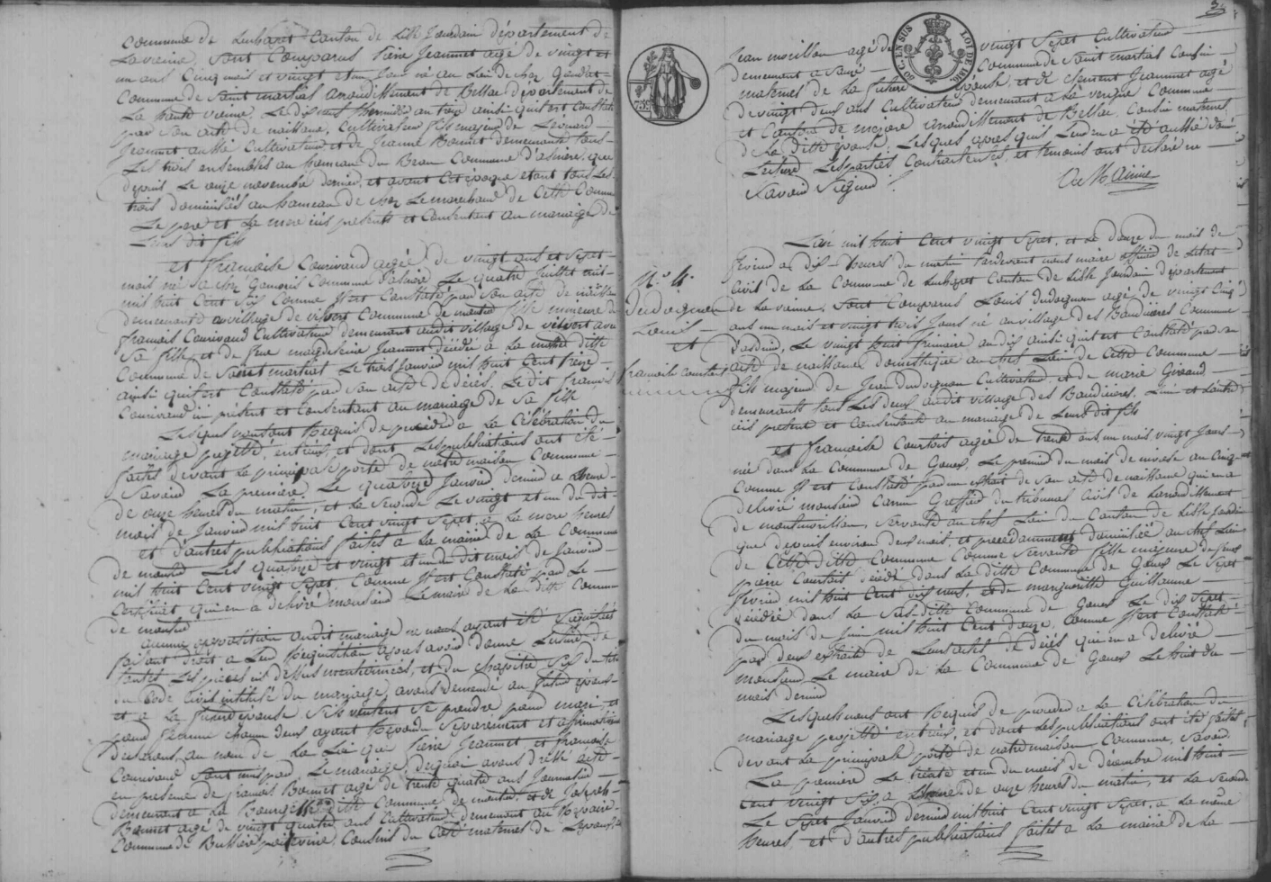 Commune de Luchapt Canton de Lisle Jourdain département de
La vienne, Sont Comparus Pierre Jeannet agé de vingt et
un ans Cinq mois et vingt et un Jour né au Lieu de chez
Commune de Saint martial arrondissement de Bellac département de
La haute vienne, Le dix huit thermidor an treize ainsi qu'il est Constaté
par Son acte de naissance, Cultivateur fils majeur de Léonard
Jeannet aussi Cultivateur et de Jeanne Bonnet demeurants tous
Les trois ensembles au hameau du Commune d'asnières, que
depuis Le onze novembre dernier, et avant Cet époque etant tous Les
trois domiciliés au hameau de chez Le marchand de Cette Commune
Le pere et La mere icis présents et Consentant au mariage de
Leurs dit fils
et françoise Courivaud agée de vingt ans et Sept
mois né a chez Commune d'asnière Le quatre Juillet
mil huit Cent Six Comme il est Constaté par Son acte de naissance
demeurante au village de Commune de fille mineure de
francois Courivaud Cultivateur demeurant audit village de avec
Sa fille, et de feue magdeleine Jeannet décédée a La ditte
Commune de Saint martial Le treize Janvier mil huit Cent treize
ainsi qu'il est Constaté par Son acte de décès, Le dit francois
Courivaud ici présent et Consentant au mariage de Sa fille
Lesquels nous ont Requis de procéder a La Célébration du
mariage projetté, entreux, et dont Les publications ont été
faites devant La principale porte de notre maison Commune
Savoir La première, Le quatorze Janvier dernier a heure
de onze heures du matin, et La Seconde Le vingt et un du dit
mois de Janvier mil huit Cent vingt Sept, a La mere heures
et d'autres publications faites a La mairie de La Commune
de Les quatorze et vingt et un du dit mois de Janvier
mil huit Cent vingt Sept, Comme il est Constaté par Le
Certificat qui en a délivré monsieur Le maire de La ditte Commune
de
aucune opposition audit mariage ne nous ayant été Signifiée
faisant droit a Leur Requisition après avoir donné Lecture de
toutes Les pieces ci dessus mentionnées, et du chapitre Six du titre
du Code Civil intitulé du mariage, avons demandé au futur epoux
et a La future epouse S'ils veulent Se prendre pour mari et
pour femme chacun deux ayant Répondu Séparément et affirmativement
declarons, au nom de La Loi que Pierre Jeannet et françoise
Courivaud Sont unis par Le mariage, de quoi avons dressé acte
en présence de francois Bonnet agé de trente quatre ans Journalier
demeurant a La ditte Commune de et de Joseph
Bonnet agé de vingt quatre ans Cultivateur demeurant au
Commune de Bussière poitevine, Cousins du Coté maternel de Lepoux, de
Jean agé de vingt Sept Cultivateur
demeurant a Commune de Saint martial Cousin
maternel de La future epouse, et de Clement Jeannet agé
de vingt deux ans Cultivateur demeurant a La vergne Commune
et Canton de mezière arrondissement de Bellac, Cousin maternel
de La ditte epouse, Lesquels après qu'il Leur en a été aussi donné
Lecture Les parties Contractantes, et temoins ont declaré ne
Savoir Signer
Delamaine
N.º 4.
Dudognon
Louis
et
francoise Courtois
L'an mil huit Cent vingt Sept, et Le douze du mois de
fevrier a dix heures du matin Pardevant nous maire officier de Létat
Civil de La Commune de Luchapt Canton de Lisle Jourdain département
de La vienne, Sont Comparus Louis Dudognon agé de vingt Cinq
ans un mois et vingt trois Jours né au village des Commune
Le vingt huit frimaire an dix ainsi qu'il est Constaté par Son
acte de naissance domestique au chef Lieu de Cette Commune
fils majeur de Jean Dudognon Cultivateur, et de marie
demeurants tous Les deux audit village des Lun et Lautre
icis présent et Consentants au mariage de Leurs dit fils
et françoise Courtois agée de trente ans un mois vingt Jours
née dans La Commune de Gouex, Le premier du mois de nivose an Cinq
Comme il est Constaté par un extrait de Son acte de naissance qui en a
délivré monsieur Greffier du tribunal Civil de Larrondissement
de montmorillon, Servante au chef Lieu du Canton de Lisle Jourdain
que depuis environ deux mois, et précédamment domiciliée au chef Lieu
de Cette ditte Commune Comme Servante, fille majeure de feu
pierre Courtois décédé dans La ditte Commune de Gouex Le Sept
février mil huit Cent dix neuf, et de marguerite Guillaume
décédée dans La Sus ditte Commune de Gouex Le dix Sept
du mois de Juin mil huit Cent douze, Comme il est Constaté
par deux extraits de Leurs actes de décès qui en a délivré
monsieur Le maire de La Commune de Gouex Le huit du
mois dernier
Lesquels nous ont Requis de procéder a La Célébration du
mariage projetté entreux, et dont Les publications ont été faites
devant La principale porte de notre maison Commune, Savoir
La première Le trente et un du mois de décembre mil huit
cent vingt Six, a heure de onze heures du matin, et La Seconde
Le Sept Janvier dernier mil huit Cent vingt Sept, a La même
heures, et d'autres publications faites a La mairie de La